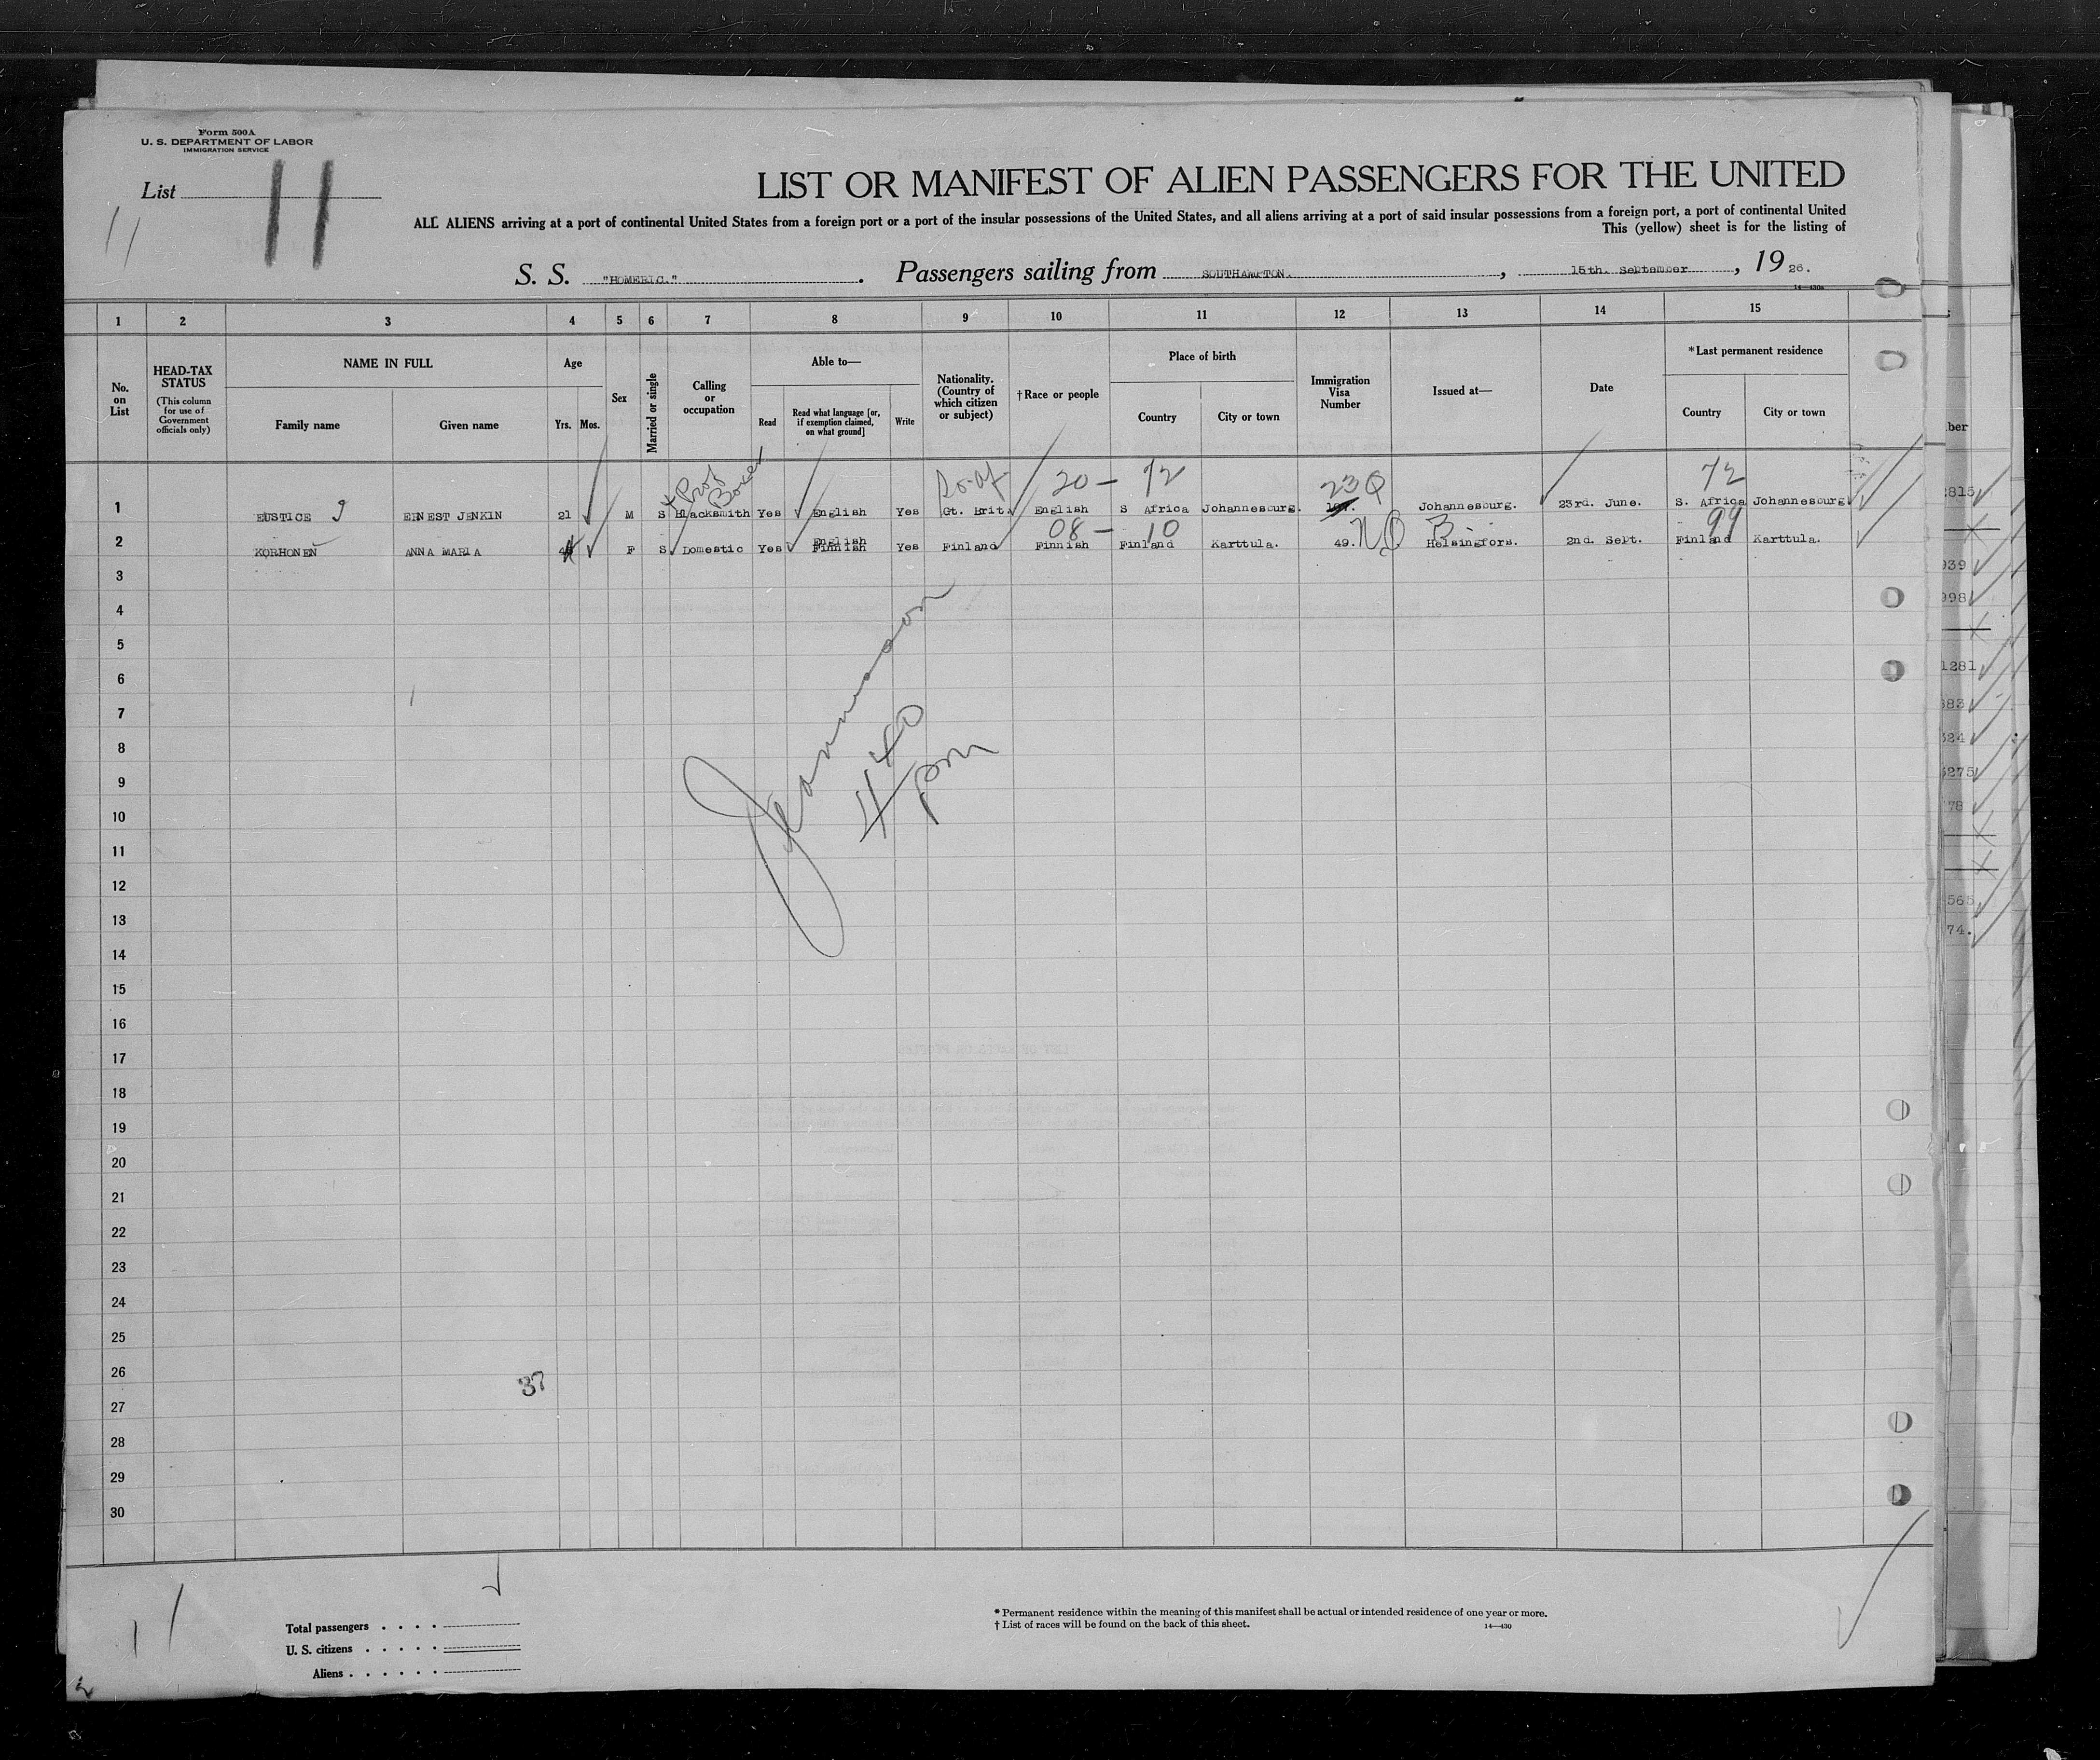 Form 500A
U. S. DEPARTMENT OF LABOR
IMMIGRATION SERVICE
List 11
11
LIST OR MANIFEST OF ALIEN PASSENGERS FOR THE UNITED
ALL ALIENS arriving at a port of continental United States from a foreign port or a port of the insular possessions of the United States, and all aliens arriving at a port of said insular possessions from a foreign port, a port of continental United
This (yellow) sheet is for the listing of
S. S. "HOMERIC." . Passengers sailing from SOUTHAMPTON. , 15th. September , 19 26.
1 2 3 4 5 6 7 8 9 10 11 12 13 14 15
No. on List
HEAD-TAX STATUS
(This column for use of Government officials only)
NAME IN FULL
Family name Given name
Age
Yrs. Mos.
Sex
Married or single
Calling or occupation
Able to—
Read Read what language [or, if exemption claimed, on what ground] Write
Nationality. (Country of which citizen or subject)
†Race or people
Place of birth
Country City or town
Immigration Visa Number
Issued at—
Date
*Last permanent residence
Country City or town
Prof Boxer So. Af 20 — 72 23Q 72
1 EUSTICE ERNEST JENKIN 21 M S Blacksmith Yes English Yes Gt. Brit. English S Africa Johannesburg. Johannesburg. 23rd. June. S. Africa Johannesburg
English 08 — 10 99
2 KORHONEN ANNA MARIA F S Domestic Yes Finnish Yes Finland Finnish Finland Karttula. 49. Helsingfors. 2nd. Sept. Finland Karttula.
3
4
5
6
7
8
9
10
11
12
13
14
15
16
17
18
19
20
21
22
23
24
25
26
27
28
29
30
440 pm
37
Total passengers . . . .
U. S. citizens . . . . .
Aliens . . . . . .
* Permanent residence within the meaning of this manifest shall be actual or intended residence of one year or more.
† List of races will be found on the back of this sheet.
14—430
2